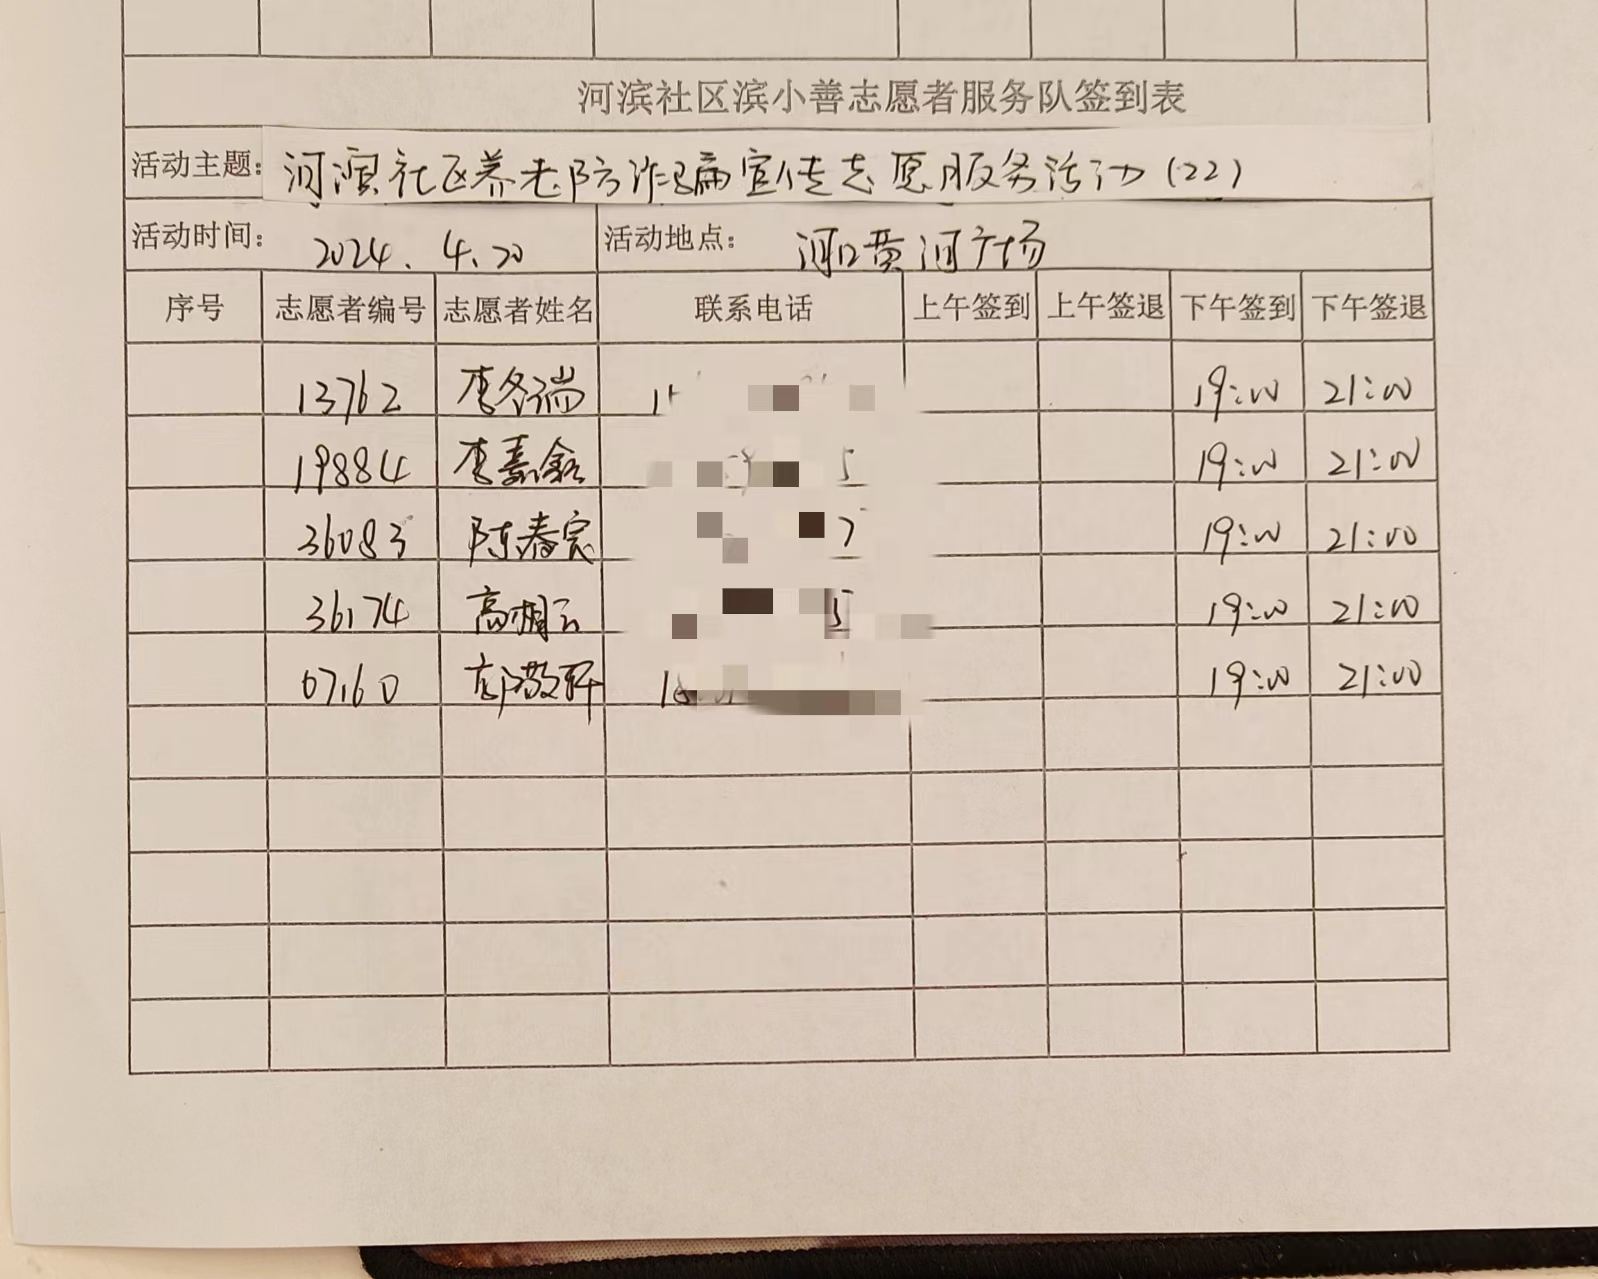 河滨社区滨小善志愿者服务队签到表
活动主题：河滨社区养老防诈骗宣传志愿服务活动(22)
活动时间：2024.4.20 活动地点：河口黄河广场
序号 志愿者编号 志愿者姓名 联系电话 上午签到 上午签退 下午签到 下午签退
13762 李冬瑞 19:00 21:00
19884 李嘉鑫 5 19:00 21:00
36083 陈春宗 7 19:00 21:00
36174 高相云 5 19:00 21:00
07160 19:00 21:00